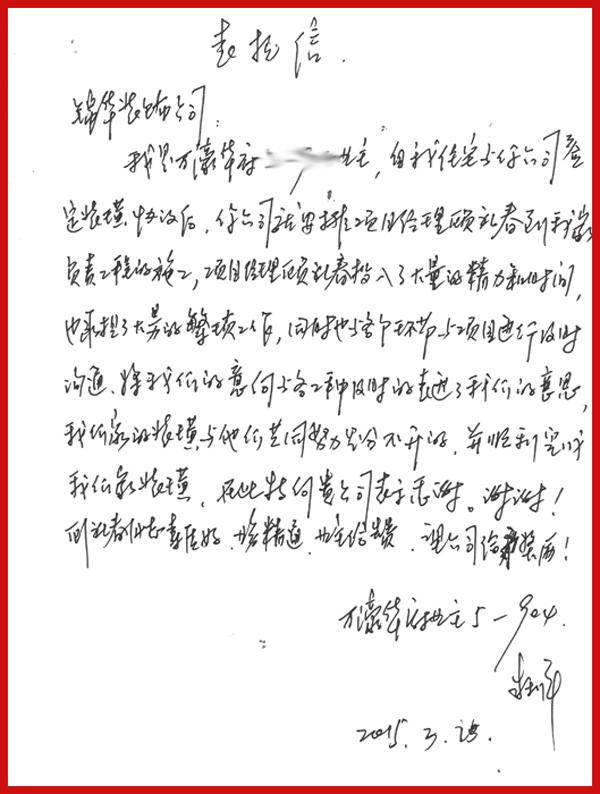 表扬信.
锦华装饰公司:
我是万濠华府 业主,自我住宅与你公司签
定装璜协议后,你公司就安排了项目经理顾礼春到我家
负责工程的施工,项目经理顾礼春投入了大量的精力和时间,
也承担了大量的繁琐工作,同时也与各个环节与项目进行及时
沟通、将我们的意向与各工种及时的表达了我们的意思,
我们家的装璜与他们共同努力是分不开的,并顺利完成
我们家装璜,在此特向贵公司表示感谢。谢谢!
顾礼春 好,业务精通,业主给 ,望公司给 !
万濠华府业主5-904.
2015.3.28.